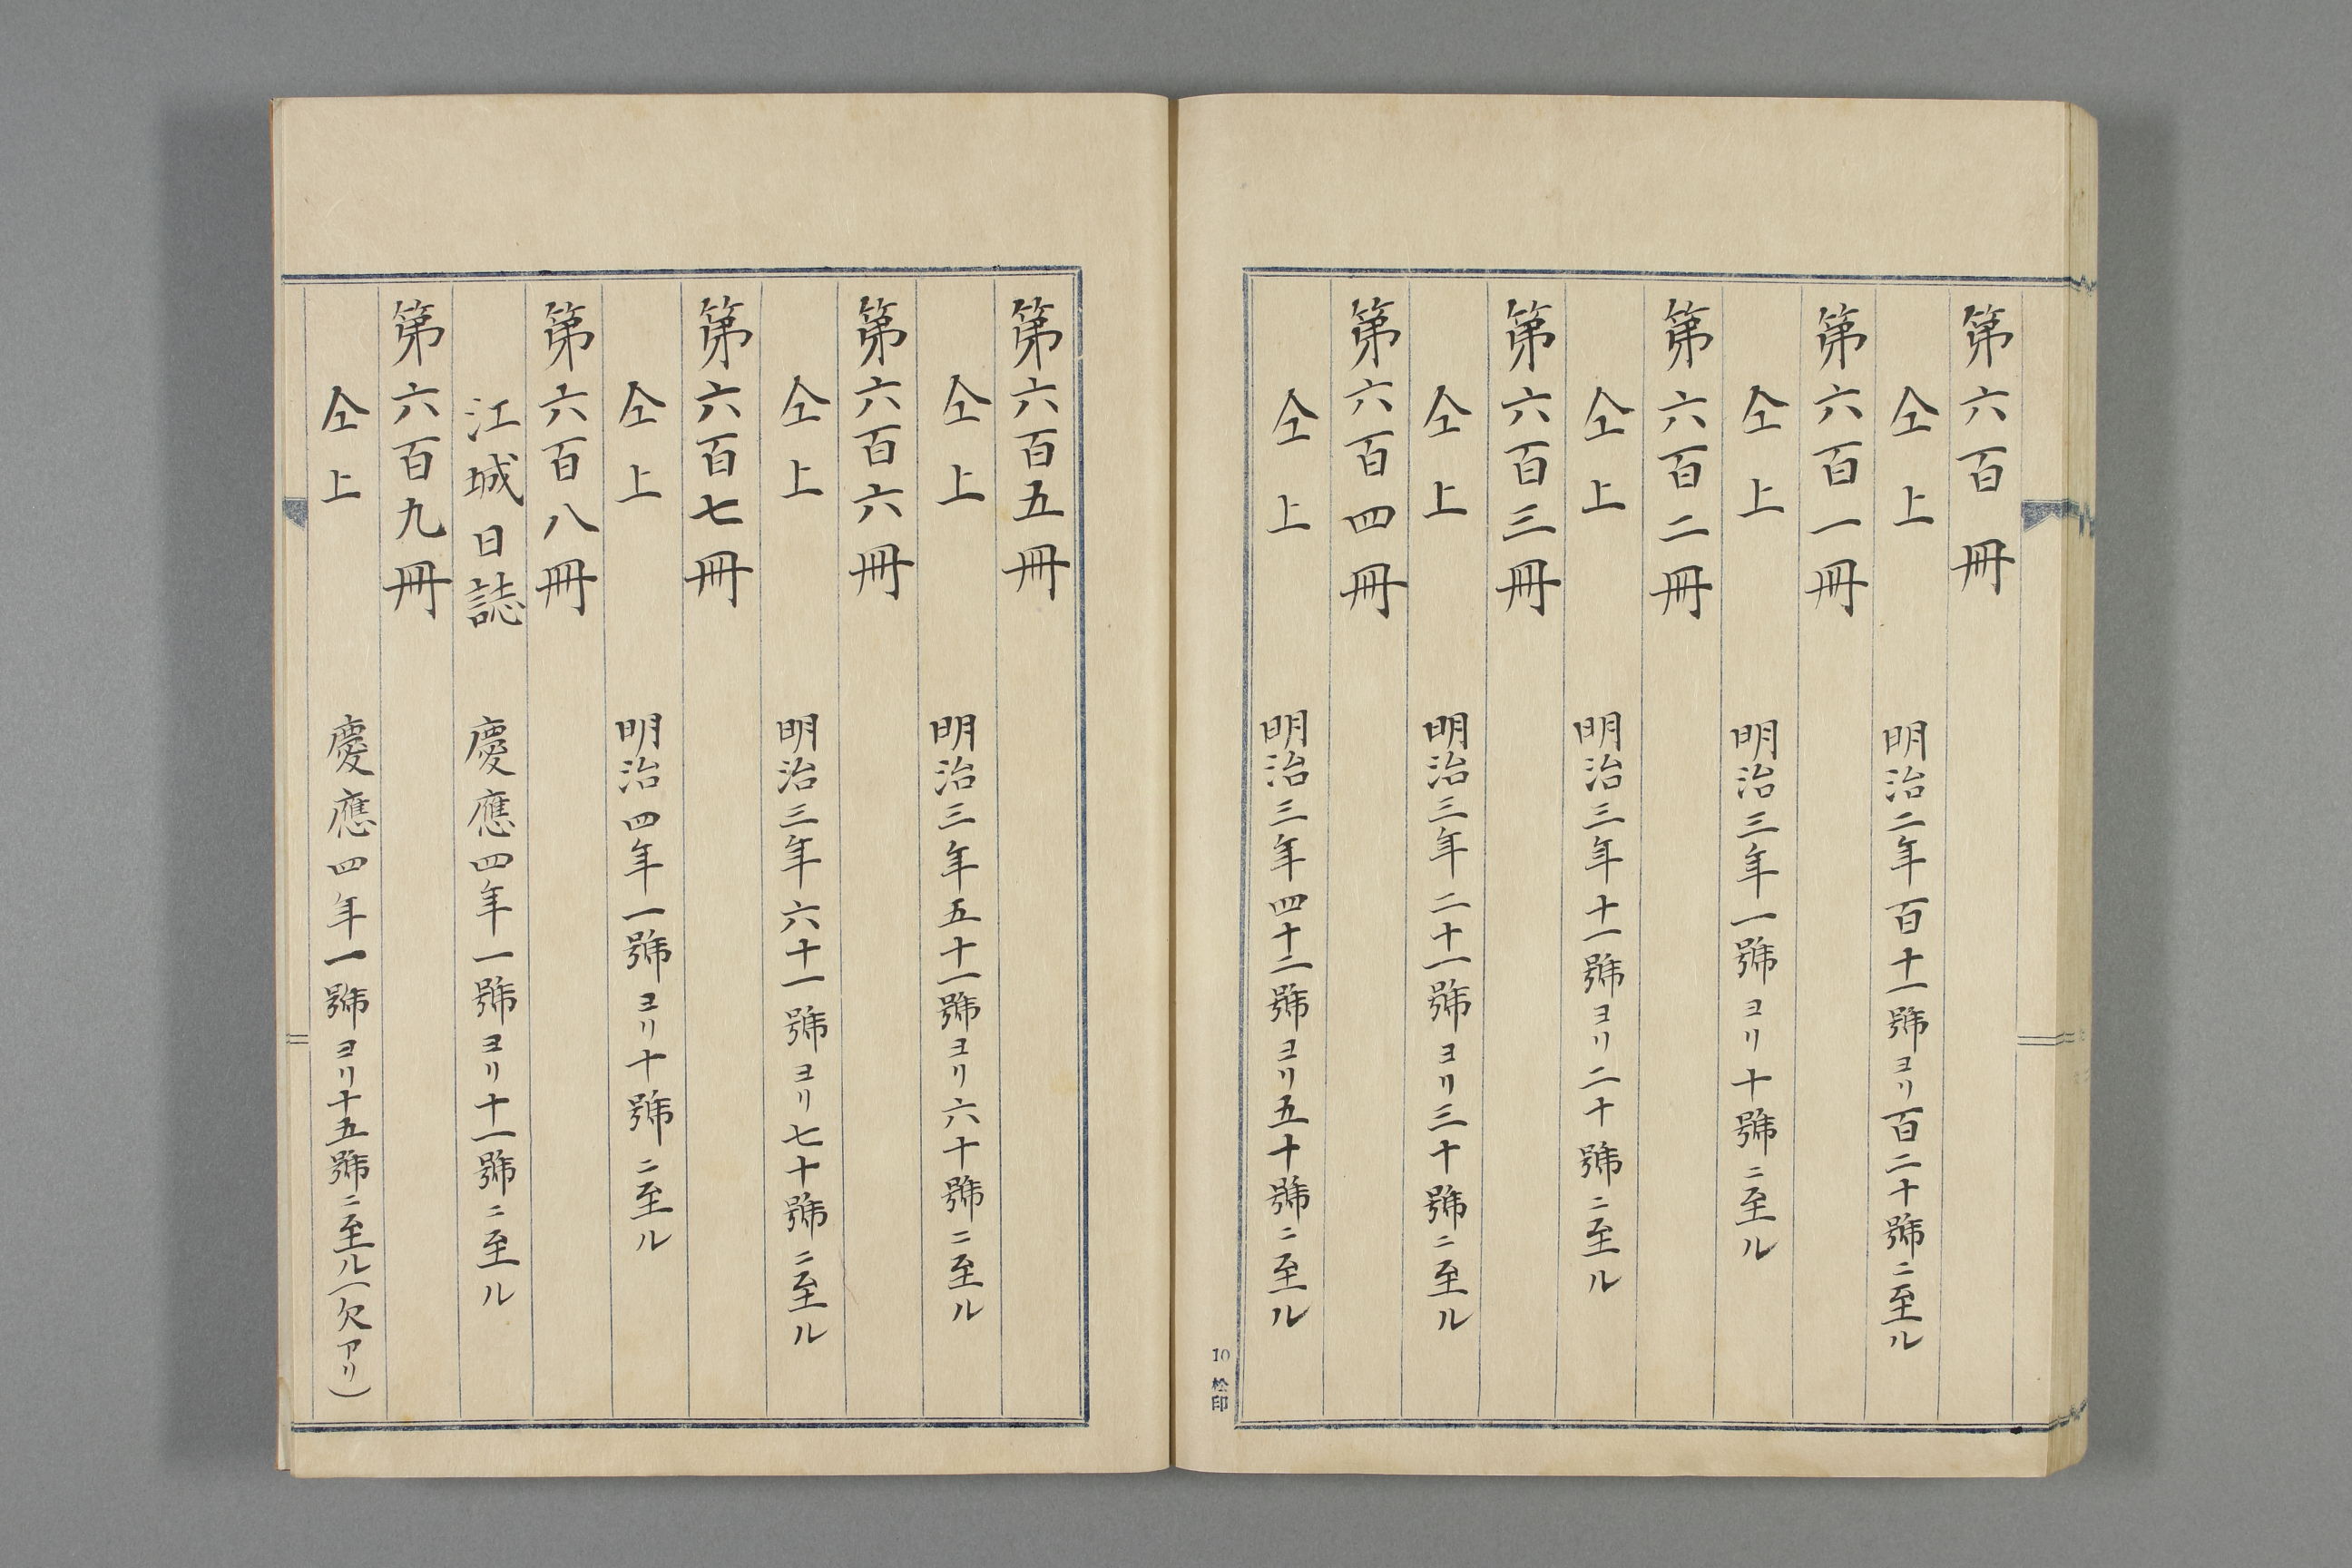 第六百冊
仝上 明治二年百十一號ヨリ百二十號ニ至ル
第六百一冊
仝上 明治三年一號ヨリ十號ニ至ル
第六百二冊
仝上 明治三年十一號ヨリ二十號ニ至ル
第六百三冊
仝上 明治三年二十一號ヨリ三十號ニ至ル
第六百四冊
仝上 明治三年四十二號ヨリ五十號ニ至ル
10 松印
第六百五冊
仝上 明治三年五十一號ヨリ六十號ニ至ル
第六百六冊
仝上 明治三年六十一號ヨリ七十號ニ至ル
第六百七冊
仝上 明治四年一號ヨリ十號ニ至ル
第六百八冊
江城日誌 慶應四年一號ヨリ十一號ニ至ル
第六百九冊
仝上 慶應四年一號ヨリ十五號ニ至ル(欠アリ)